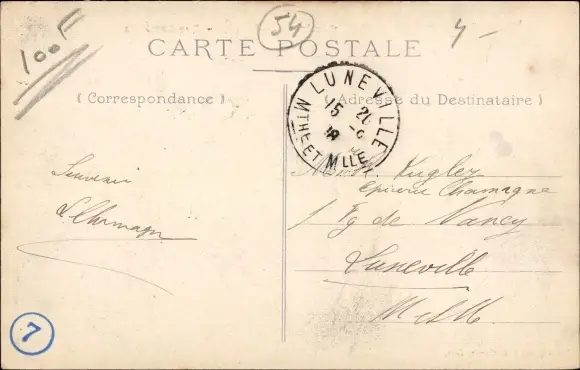 100F
54
4 -
CARTE POSTALE
( Correspondance )
Adresse du Destinataire )
LUNEVILLE
15 * 20
18
MTHE ET MLLE
Souvenir
Kugler
épicerie Chamagne
1 Fg de Nancy
Luneville
M et M.
7